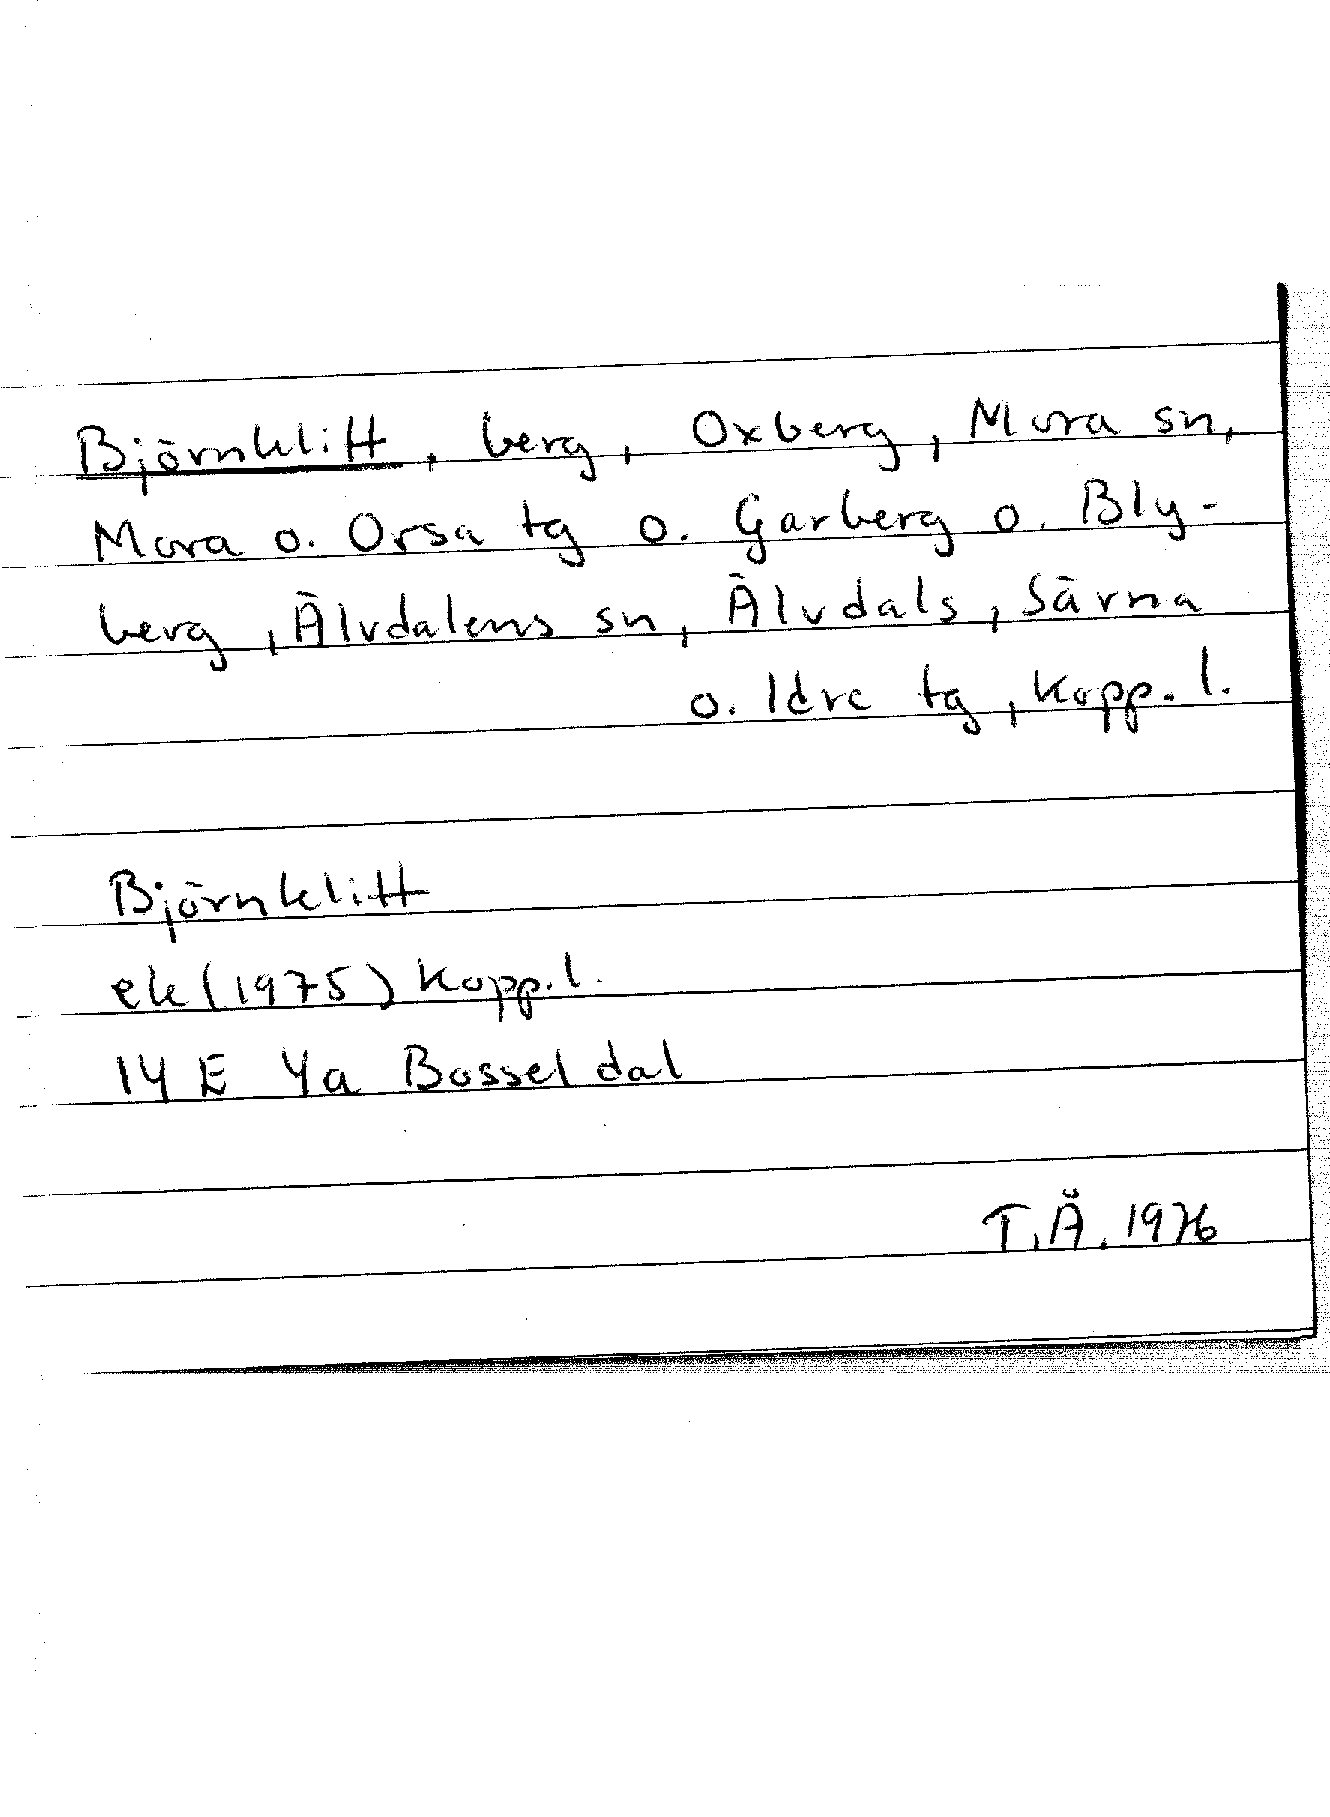 Björnklitt, berg, Oxberg, Mora sn,
Mora o. Orsa tg o. Garberg o. Bly-
berg, Älvdalens sn, Älvdals, Särna
o. Idre tg, Kopp. l.
Björnklitt
ek (1975) Kopp. l.
14 E 4a Bosseldal
T.Ä. 1976